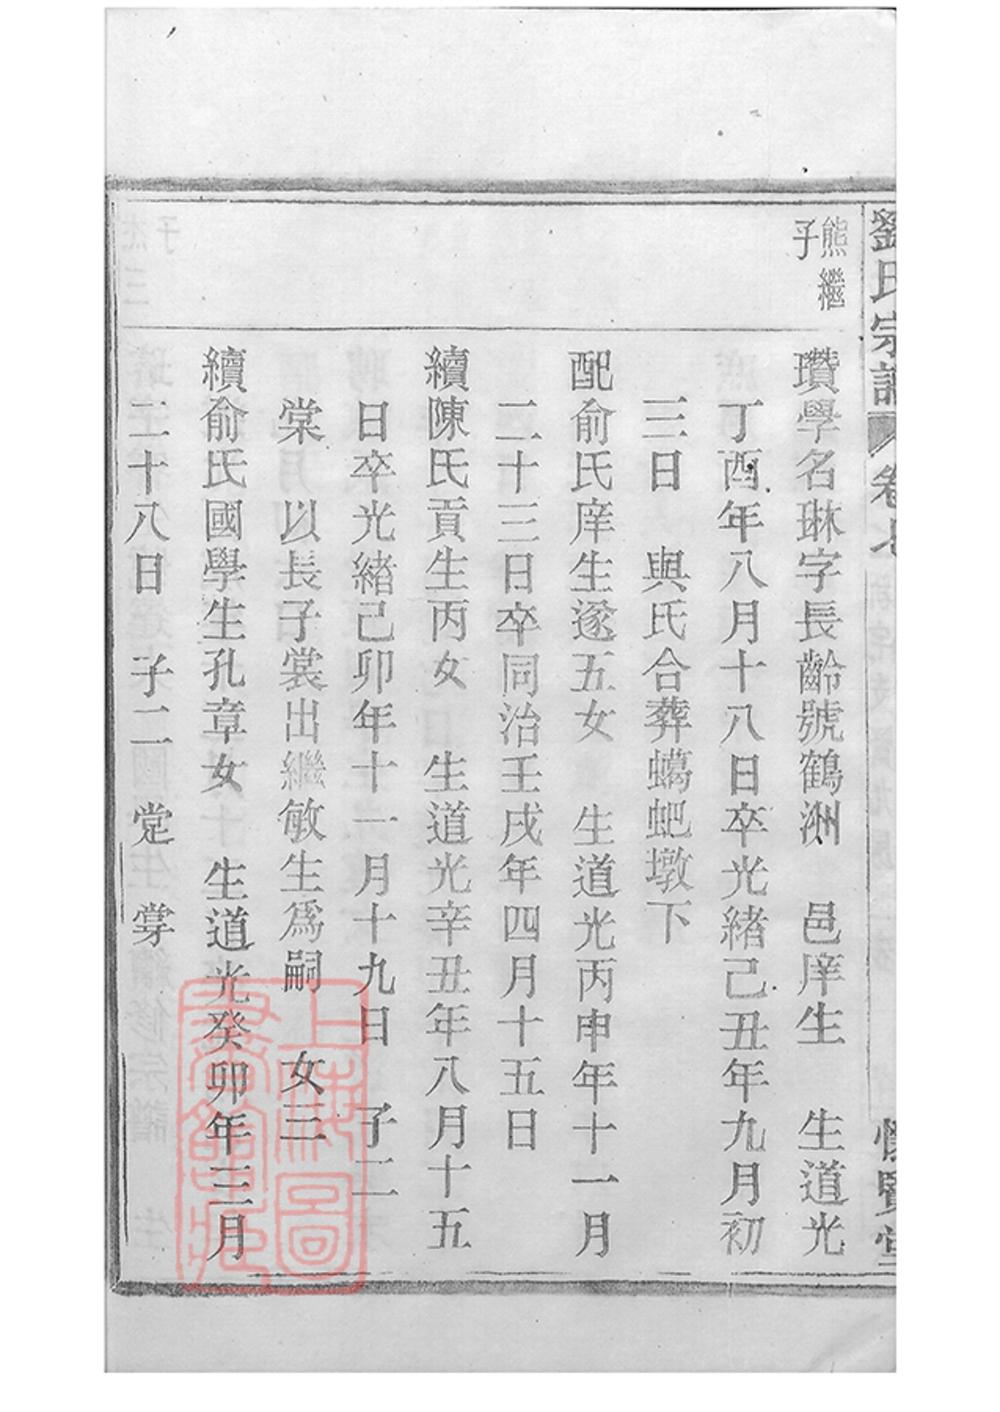 劉氏宗譜 卷七 懷賢堂
熊繼
子
瓚學名琳字長齡號鶴洲 邑庠生 生道光
丁酉年八月十八日卒光緒己丑年九月初
三日 與氏合葬蠣蚆墩下
配俞氏庠生遂五女 生道光丙申年十一月
二十三日卒同治壬戌年四月十五日
續陳氏貢生丙女 生道光辛丑年八月十五
日卒光緒己卯年十一月十九日 子二
棠 以長子裳出繼敏生爲嗣 女三
續俞氏國學生孔章女 生道光癸卯年三月
二十八日 子二 党 牚
上海圖書館藏